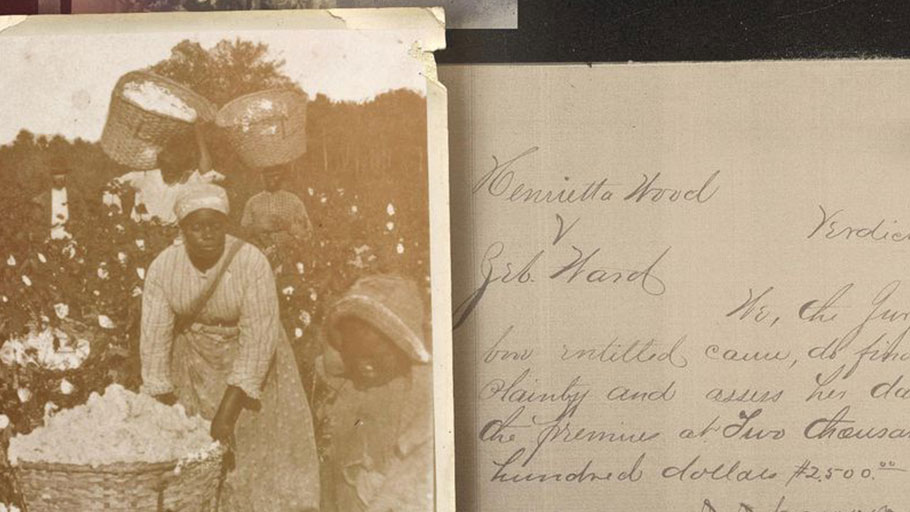 Henrietta Wood
V
Zeb. Ward
Verdic
We, the Jur
bov entitled cause, do find
plainty and assess her da
the premises at Two thousan
hundred dollars $2,500.00